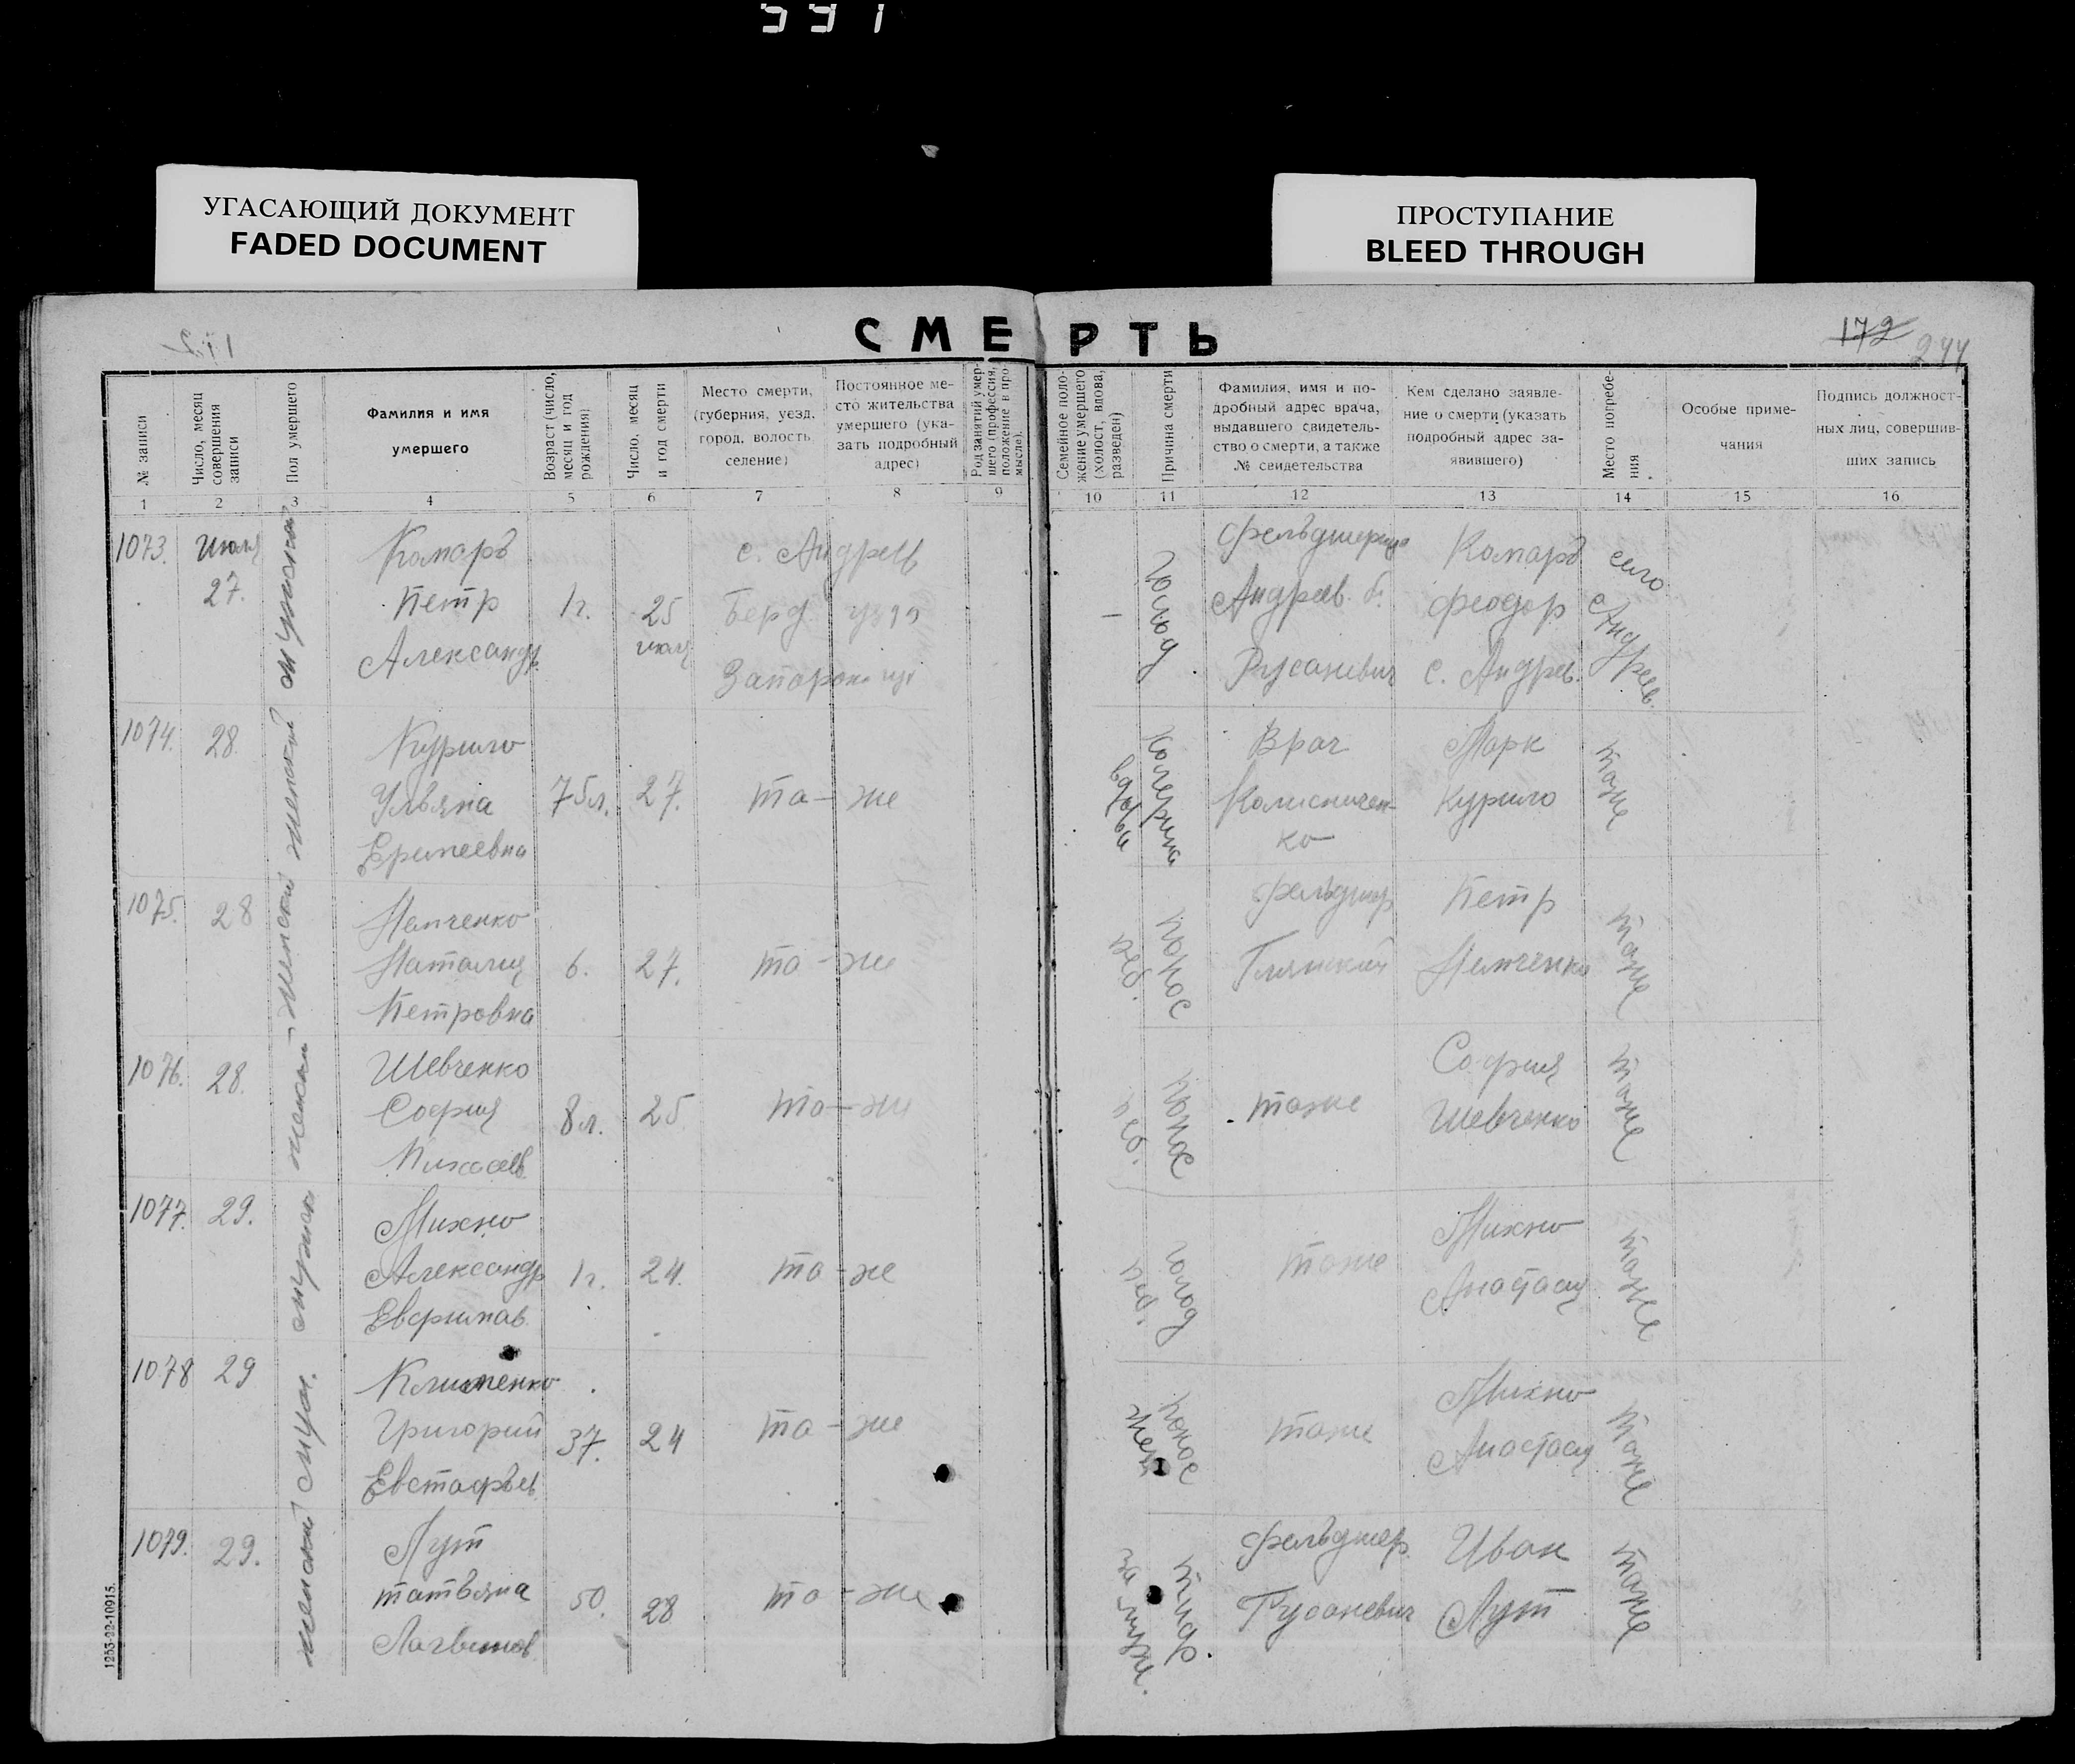 591
УГАСАЮЩИЙ ДОКУМЕНТ
FADED DOCUMENT
ПРОСТУПАНИЕ
BLEED THROUGH
СМЕРТЬ
172
244
№ записи
Число, месяц совершения записи
Пол умершего
Фамилия и имя
умершего
Возраст (число, месяц и год рождения)
Число, месяц и год смерти
Место смерти,
(губерния, уезд,
город, волость,
селение)
Постоянное ме-
сто жительства
умершего (ука-
зать подробный
адрес)
Род занятий умер-
шего (профессия,
положение в про-
мысле).
Семейное поло-
жение умершего
(холост, вдова,
разведен)
Причина смерти
Фамилия, имя и по-
дробный адрес врача,
выдавшего свидетель-
ство о смерти, а также
№ свидетельства
Кем сделано заявле-
ние о смерти (указать
подробный адрес за-
явившего)
Место погребе-
ния
Особые приме-
чания
Подпись должност-
ных лиц, совершив-
ших запись
1 2 3 4 5 6 7 8 9 10 11 12 13 14 15 16
1073. июля
27.
мужской
Комаръ
Петр
Александр.
1г.
25
июля
с. Андреев
Берд. уезда
—
голод
Андреев. б.
Русаневич
Комаръ
Феодор
с. Андреев.
село
Андреев.
1074. 28.
женский
Курило
Ульяна
Еремеевна
75л.
27.
та-же
вдова
Врач
Колисничен-
ко
Марк
Курило
тоже
1075. 28
женский
Немченко
Наталия
Петровна
6.
27.
та-же
понос
фельдшер
Глянский
Петр
Немченко
тоже
1076. 28.
женский
Шевченко
София
8л.
25
та-же
понос
тоже
София
Шевченко
тоже
1077. 29.
мужской
Михно
Александр
Евфимов.
1г.
24.
та-же
голод
тоже
Михно
Анастасия
тоже
1078 29
муж.
Клименко
Григорий
Евстафьев.
37.
24
та-же
понос
тоже
Михно
Анастасия
тоже
1079. 29.
женский
Лут
татьяна
50.
28
та-же
за муже.
тиф.
фельдшер.
Русаневич
Иван
Лут
тоже
1253-22-10915.